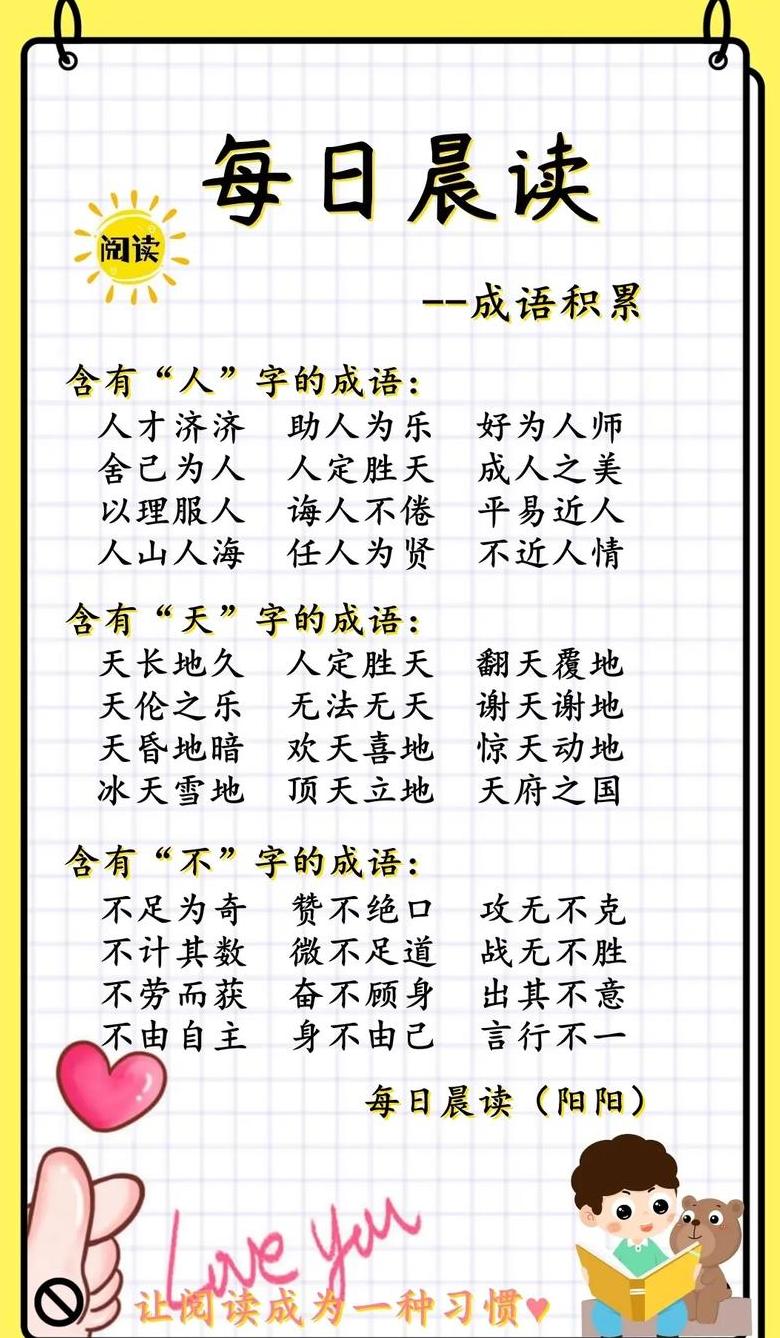 每日晨读
阅读
--成语积累
含有“人”字的成语：
人才济济 助人为乐 好为人师
舍己为人 人定胜天 成人之美
以理服人 诲人不倦 平易近人
人山人海 任人为贤 不近人情
含有“天”字的成语：
天长地久 人定胜天 翻天覆地
天伦之乐 无法无天 谢天谢地
天昏地暗 欢天喜地 惊天动地
冰天雪地 顶天立地 天府之国
含有“不”字的成语：
不足为奇 赞不绝口 攻无不克
不计其数 微不足道 战无不胜
不劳而获 奋不顾身 出其不意
不由自主 身不由己 言行不一
每日晨读（阳阳）
Love you
让阅读成为一种习惯♥